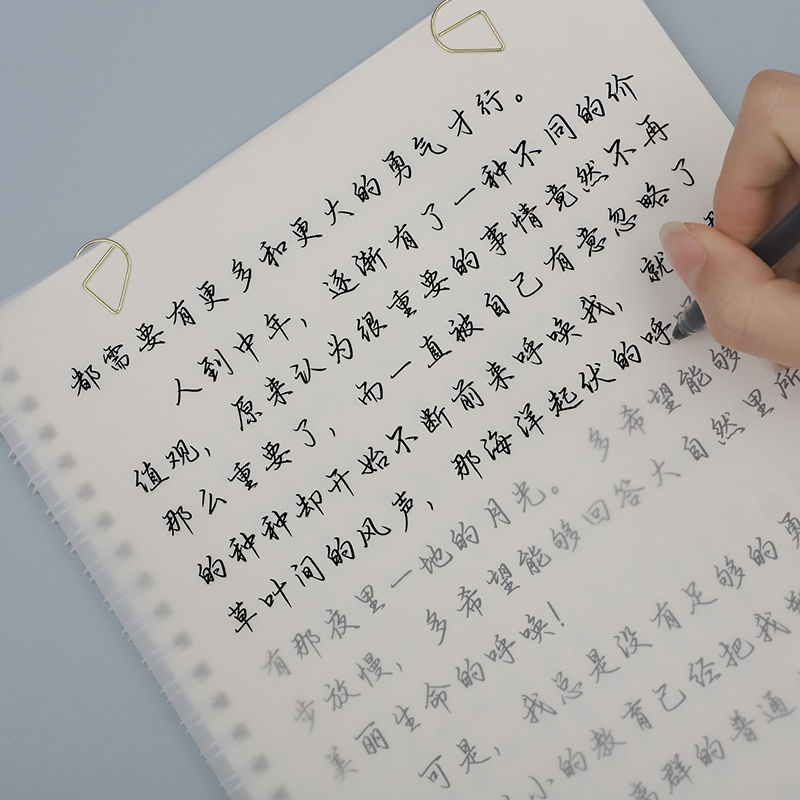 都需要有更多和更大的勇气才行。
人到中年，逐渐有了一种不同的价
值观，原来认为很重要的事情竟然不再
那么重要了，而一直被自己有意忽略了
的种种却开始不断前来呼唤我，就
草叶间的风声，那海洋起伏的呼
有那夜里一地的月光。多希望能够
步放慢，多希望能够回答大自然里所
美丽生命的呼唤！
可是，我总是没有足够的勇
小的教育已经把我
离群的普通